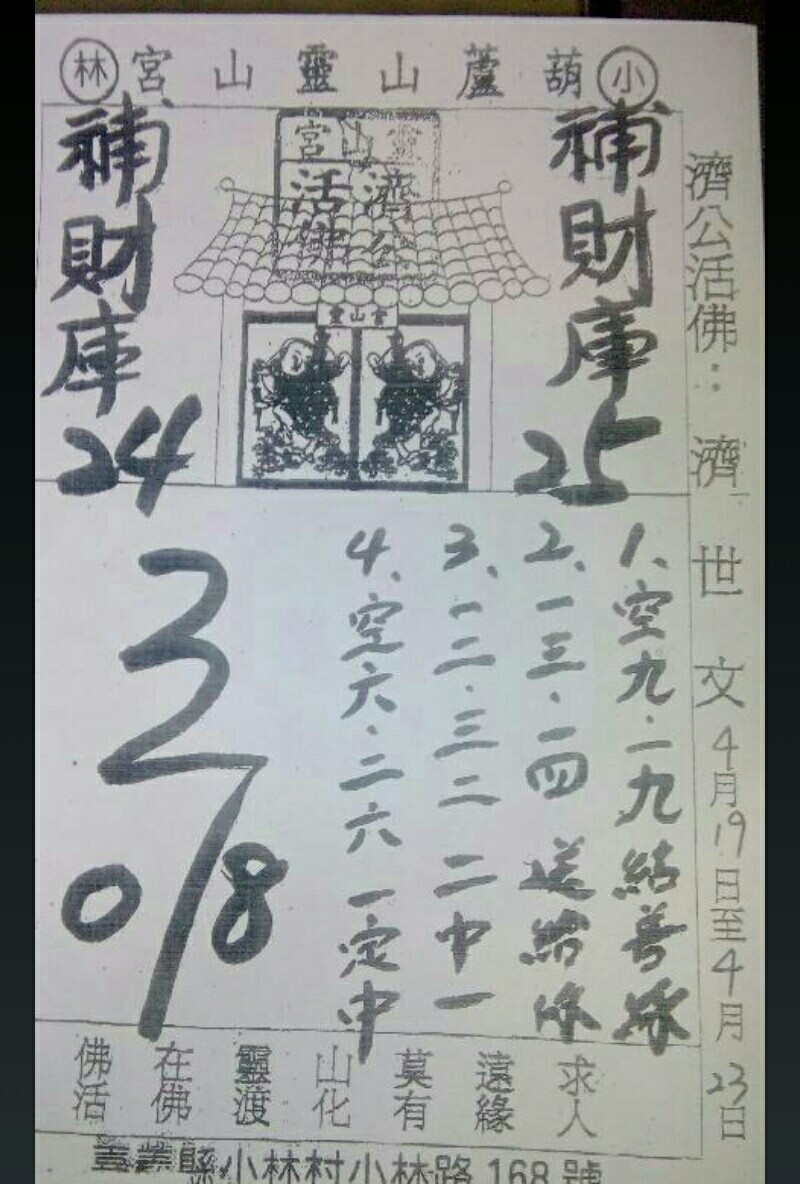 小葫蘆山靈山宮林
濟公活佛：濟世文4月19日至4月23日
補財庫25
靈山宮
濟公活佛
靈山宮
補財庫24
1、空九·一九結善緣
2、一三·一四送給你
3、一二·三二二中一
4、空六·二六一定中
3
0 8
求人
遠緣
莫有
山化
靈渡
在佛
佛活
嘉義縣小林村小林路168號